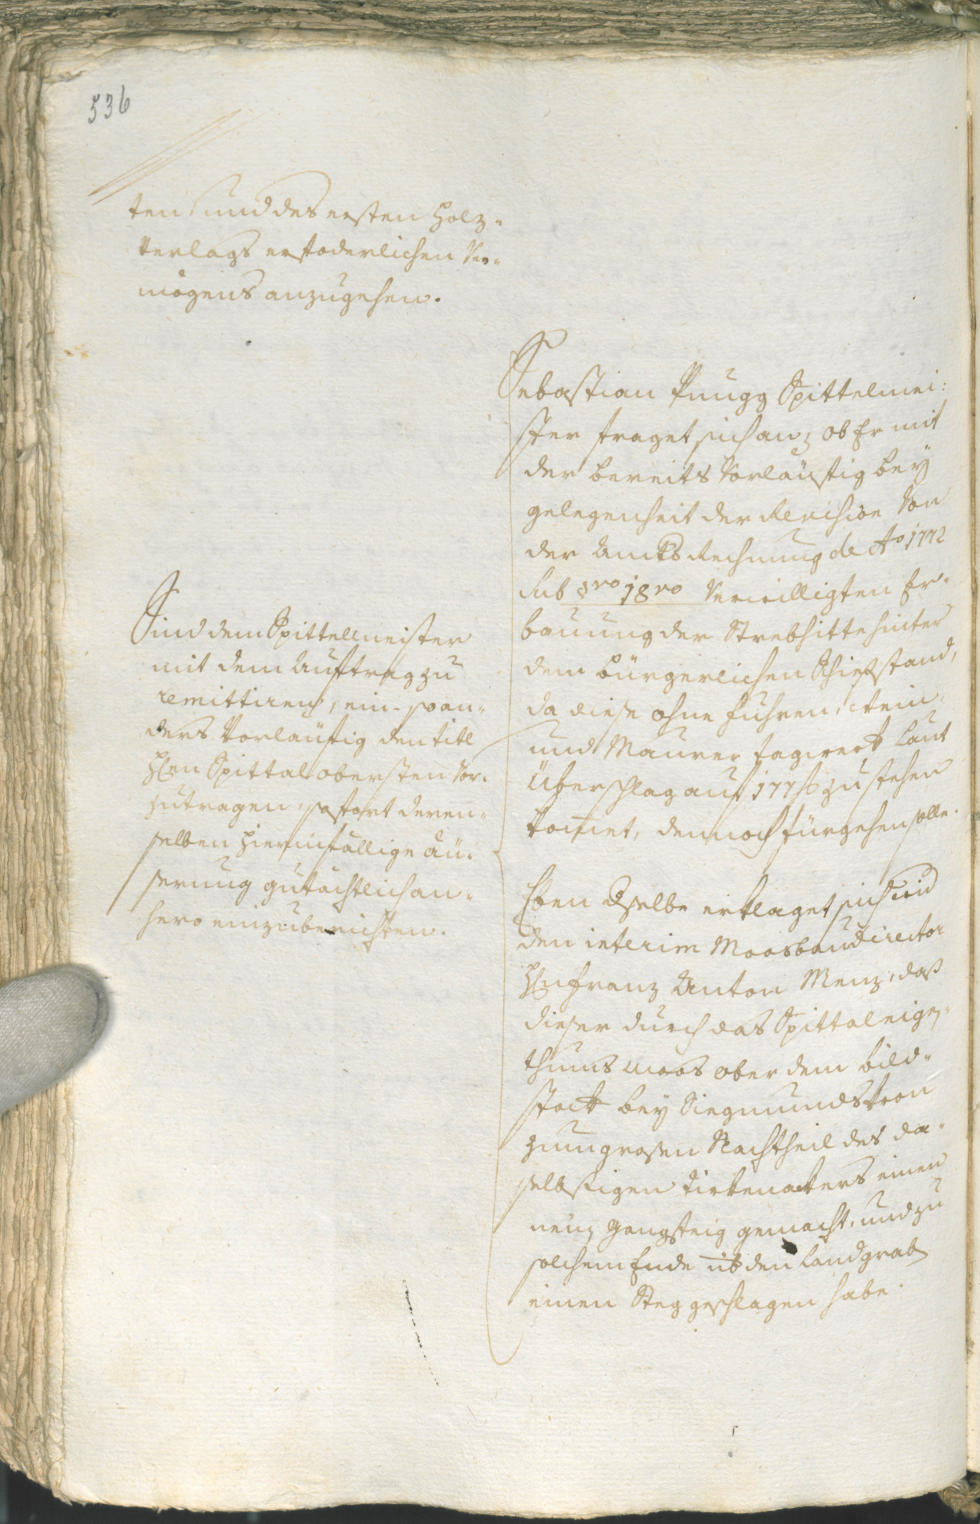 536
ten, und des ersten Holz-
Verlags erfoderlichen Ver-
mögens anzugehen.
Sebastian Knugg Spittelmei-
ster fraget sich an, ob Er mit
der bereits Vorläuftig beÿ
gelegenheit der Revision Von
der Amts Rechnung de Ao 1772
sub 8vo 18vo Verwilligten Er-
bauung der Strebhitte hinter
dem bürgerlichen Schießstand,
da diese ohne fuhren, stein,
und Maurer tagwerk laut
Überschlag auf 177 f zu stehen
komet, dennoch fürgehen solle.
Sind dem Spittelmeister
mit dem Auftrag zu
remittiren, ein- so an-
ders Vorläuftig den titl
Hrn Spittal obersten Vor-
zutragen, sofort deren-
selben hierinfällige äu-
serung gutächtlich an-
hero einzuberichten.
Eben dselbe erklaget sich wid
den interim Moosbaudirector
Hrn Franz Anton Menz, daß
dieser durch das Spittal eigen-
thums Moos ober dem bild-
stock beÿ Siegmundskron
zum grosen Nachtheil des da-
selbstigen türkenackers einen
neuen gangsteig gemacht, und zu
solchem Ende üb den Landgrab
einen Steg geschlagen habe.